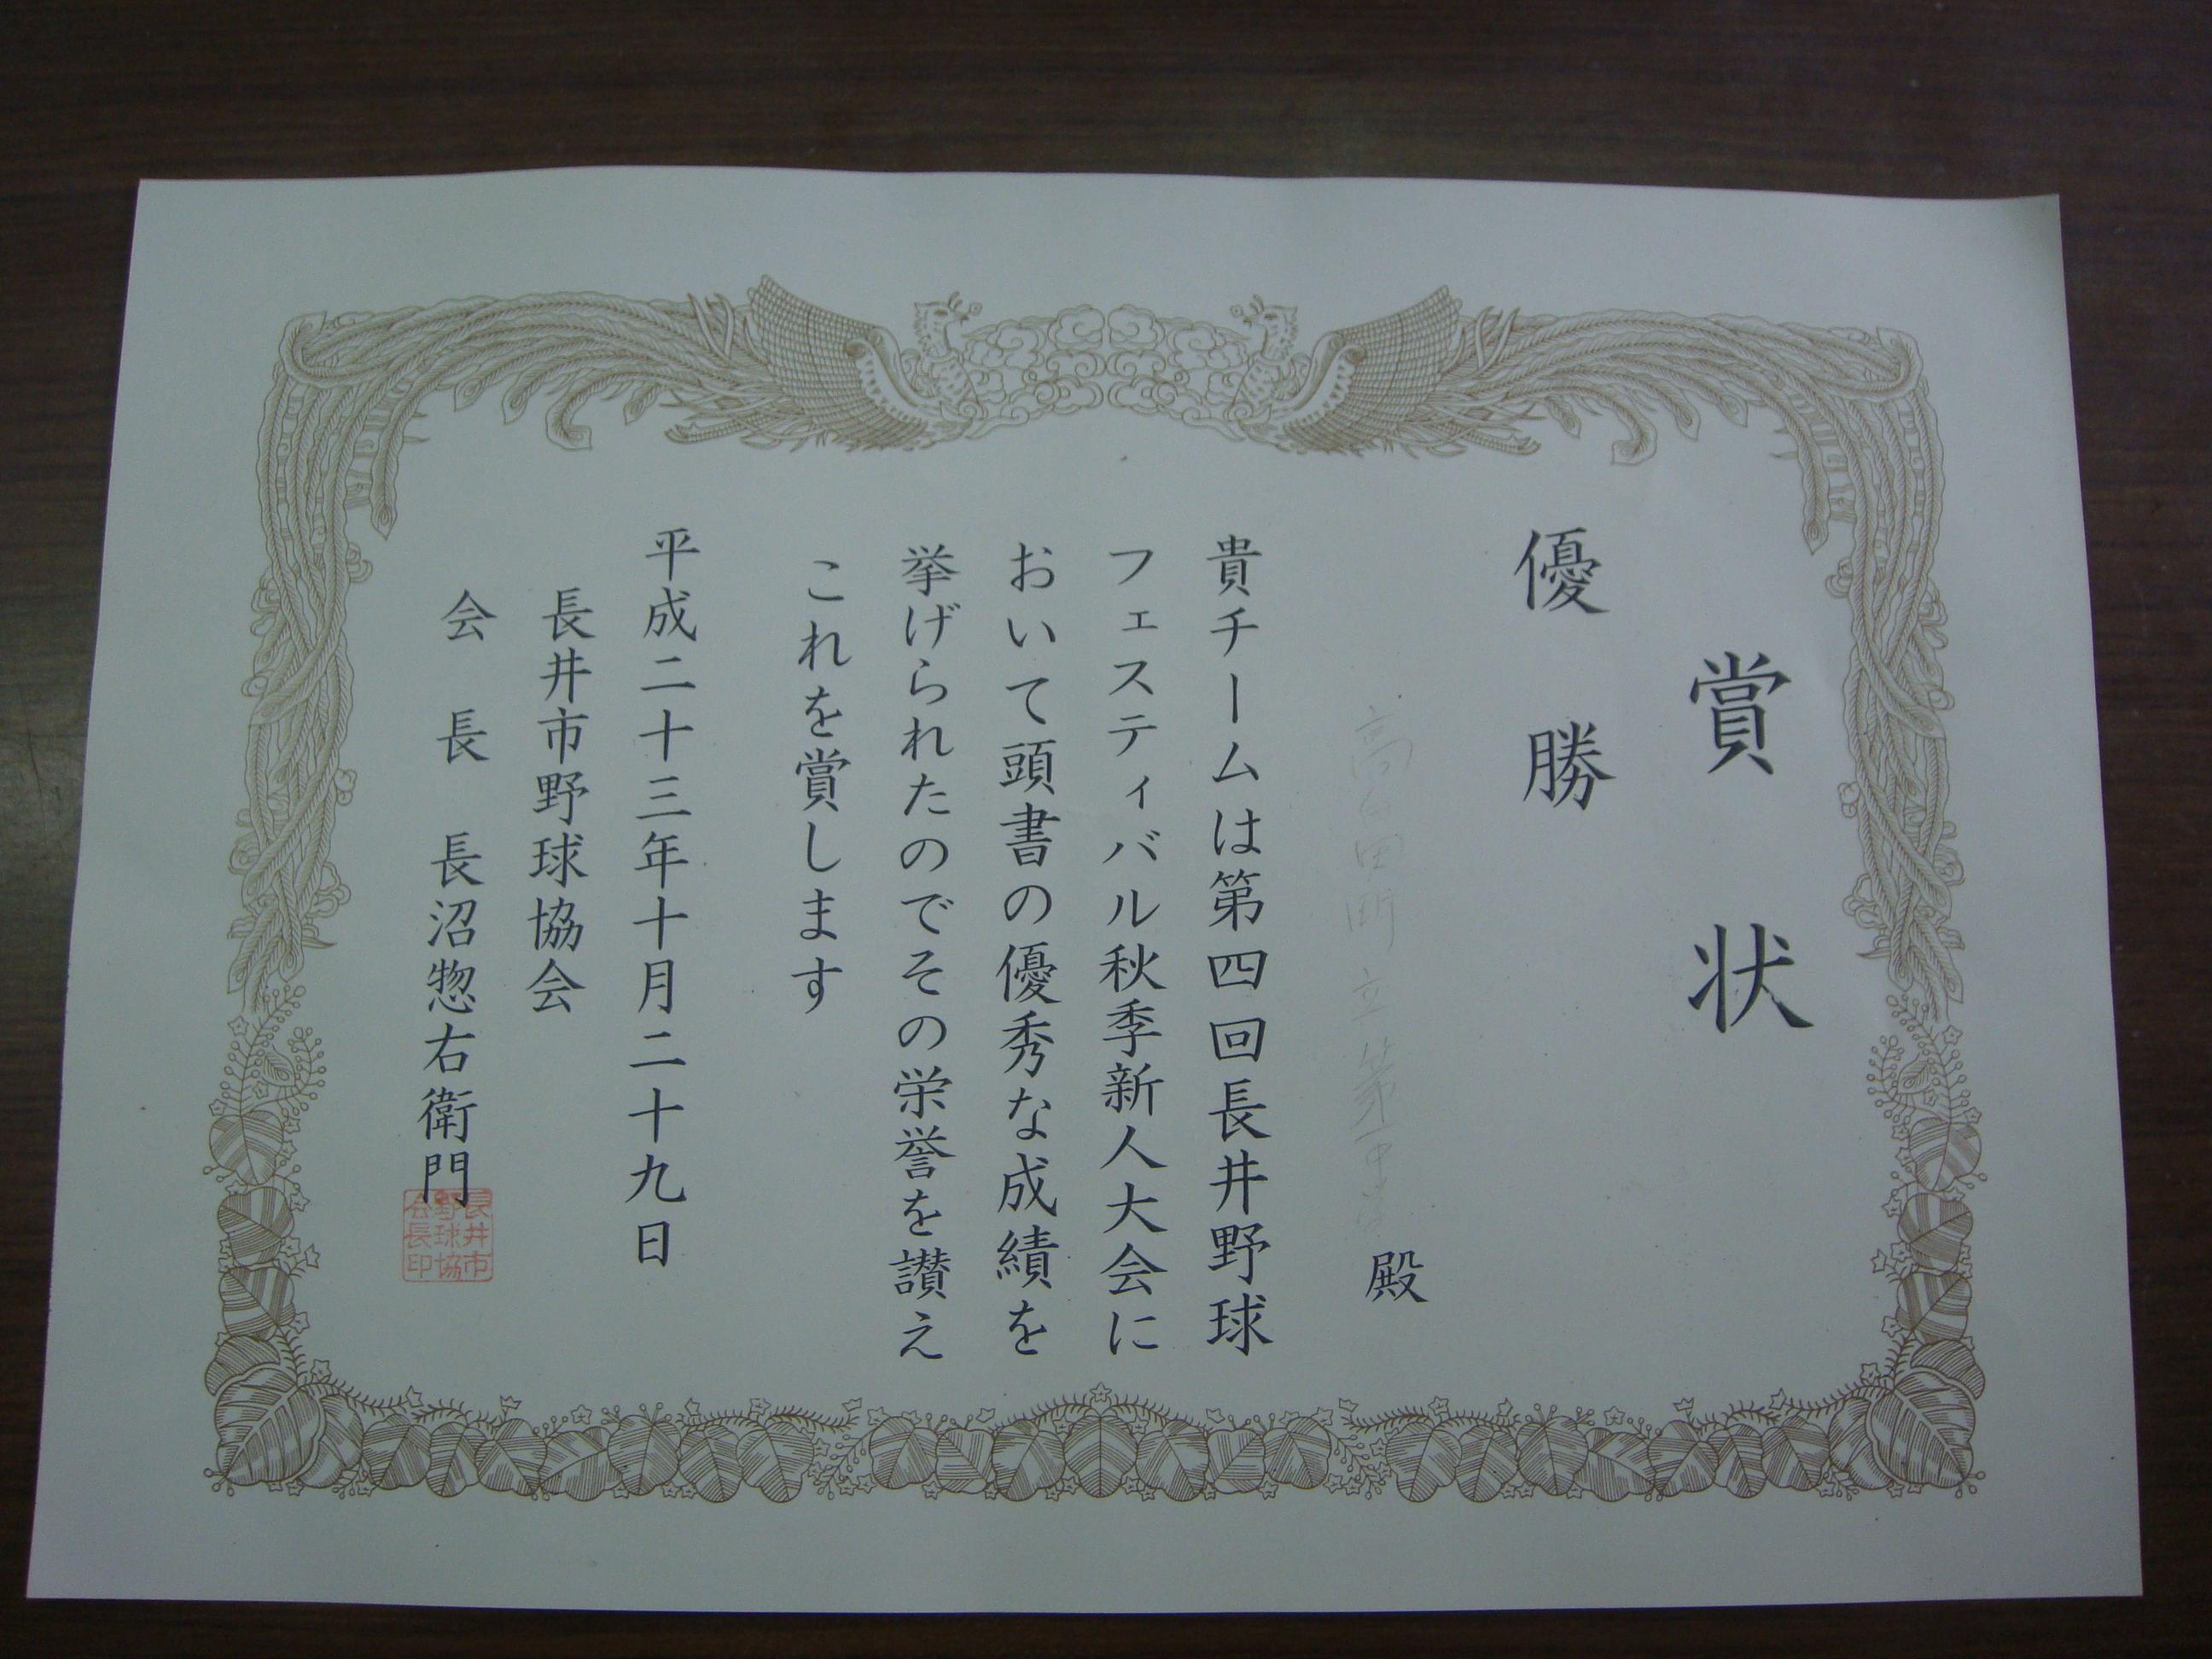 賞状
優勝
殿
貴チームは第四回長井野球
フェスティバル秋季新人大会に
おいて頭書の優秀な成績を
挙げられたのでその栄誉を讃え
これを賞します
平成二十三年十月二十九日
長井市野球協会
会長 長沼惣右衛門
長井市
野球協
会長印